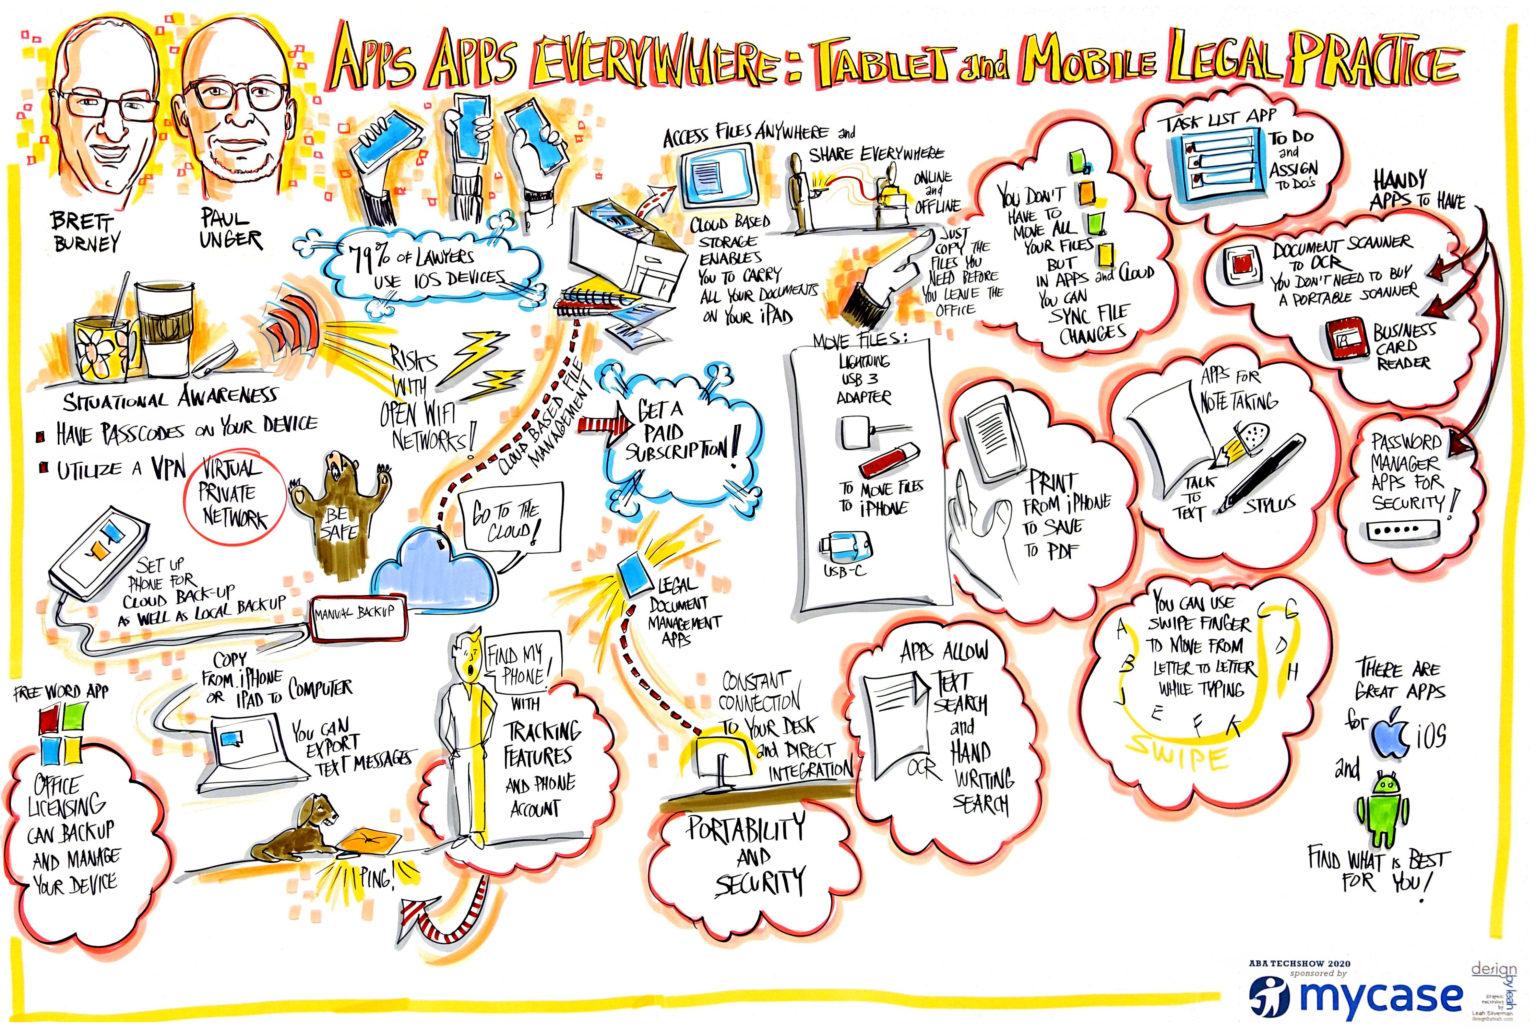 APPS APPS EVERYWHERE: TABLET and MOBILE LEGAL PRACTICE
BRETT
BURNEY
PAUL
UNGER
79% OF LAWYERS
USE IOS DEVICES
SITUATIONAL AWARENESS
HAVE PASSCODES ON YOUR DEVICE
UTILIZE A VPN
VIRTUAL
PRIVATE
NETWORK
RISKS
WITH
OPEN WIFI
NETWORKS!
BE
SAFE
SET UP
PHONE FOR
CLOUD BACK-UP
AS WELL AS LOCAL BACKUP
MANUAL BACKUP
GO TO THE
CLOUD!
CLOUD BASED FILE
MANAGEMENT
COPY
FROM iPHONE
OR IPAD TO COMPUTER
YOU CAN
EXPORT
TEXT MESSAGES
FREE WORD APP
OFFICE
LICENSING
CAN BACKUP
AND MANAGE
YOUR DEVICE
PING!
FIND MY
PHONE!
WITH
TRACKING
FEATURES
AND PHONE
ACCOUNT
ACCESS FILES ANYWHERE and
SHARE EVERYWHERE
ONLINE
and
OFFLINE
CLOUD BASED
STORAGE
ENABLES
YOU TO CARRY
ALL YOUR DOCUMENTS
ON YOUR iPAD
JUST
COPY THE
FILES YOU
NEED BEFORE
YOU LEAVE THE
OFFICE
GET A
PAID
SUBSCRIPTION!
LEGAL
DOCUMENT
MANAGEMENT
APPS
CONSTANT
CONNECTION
TO YOUR DESK
and DIRECT
INTEGRATION
PORTABILITY
AND
SECURITY
MOVE FILES:
LIGHTNING
USB 3
ADAPTER
TO MOVE FILES
TO iPHONE
USB-C
YOU DON'T
HAVE TO
MOVE ALL
YOUR FILES
BUT
IN APPS and CLOUD
YOU CAN
SYNC FILE
CHANGES
PRINT
FROM iPHONE
TO SAVE
TO PDF
APPS ALLOW
TEXT
SEARCH
and
HAND
WRITING
SEARCH
OCR
TASK LIST APP
TO DO
and
ASSIGN
TO DO's
HANDY
APPS TO HAVE
DOCUMENT SCANNER
TO OCR
YOU DON'T NEED TO BUY
A PORTABLE SCANNER
BUSINESS
CARD
READER
APPS FOR
NOTE TAKING
TALK
TO
TEXT
STYLUS
PASSWORD
MANAGER
APPS FOR
SECURITY!
YOU CAN USE
SWIPE FINGER
TO MOVE FROM
LETTER TO LETTER
WHILE TYPING
A
B
J
E
F
K
C
G
D
H
SWIPE
THERE ARE
GREAT APPS
for iOS
and
FIND WHAT IS BEST
FOR YOU!
ABA TECHSHOW 2020
sponsored by
mycase
design
by leah
Leah Silverman